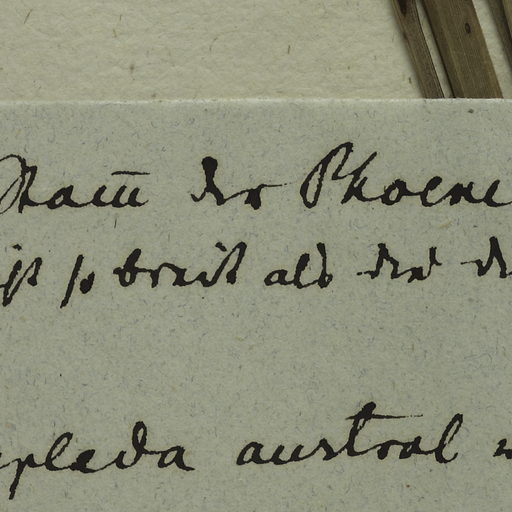 Stam̅ der Phoene
ist so breit als der de
pleda austral